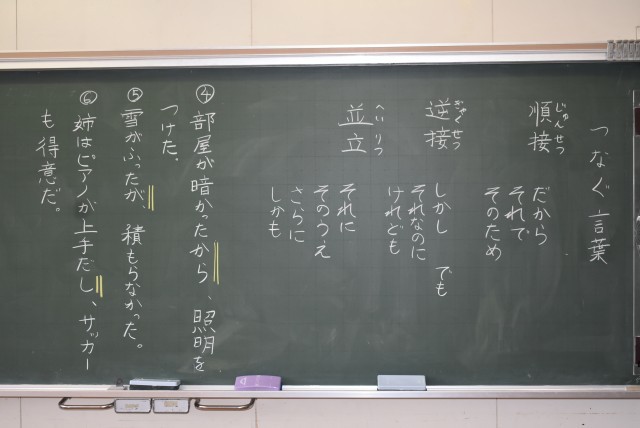 つなぐ言葉
順接
じゅんせつ
だから
それで
そのため
逆接
ぎゃくせつ
しかし でも
それなのに
けれども
並立
へいりつ
それに
そのうえ
さらに
しかも
④部屋が暗かったから、照明を
つけた。
⑤雪がふったが、積もらなかった。
⑥姉はピアノが上手だし、サッカー
も得意だ。